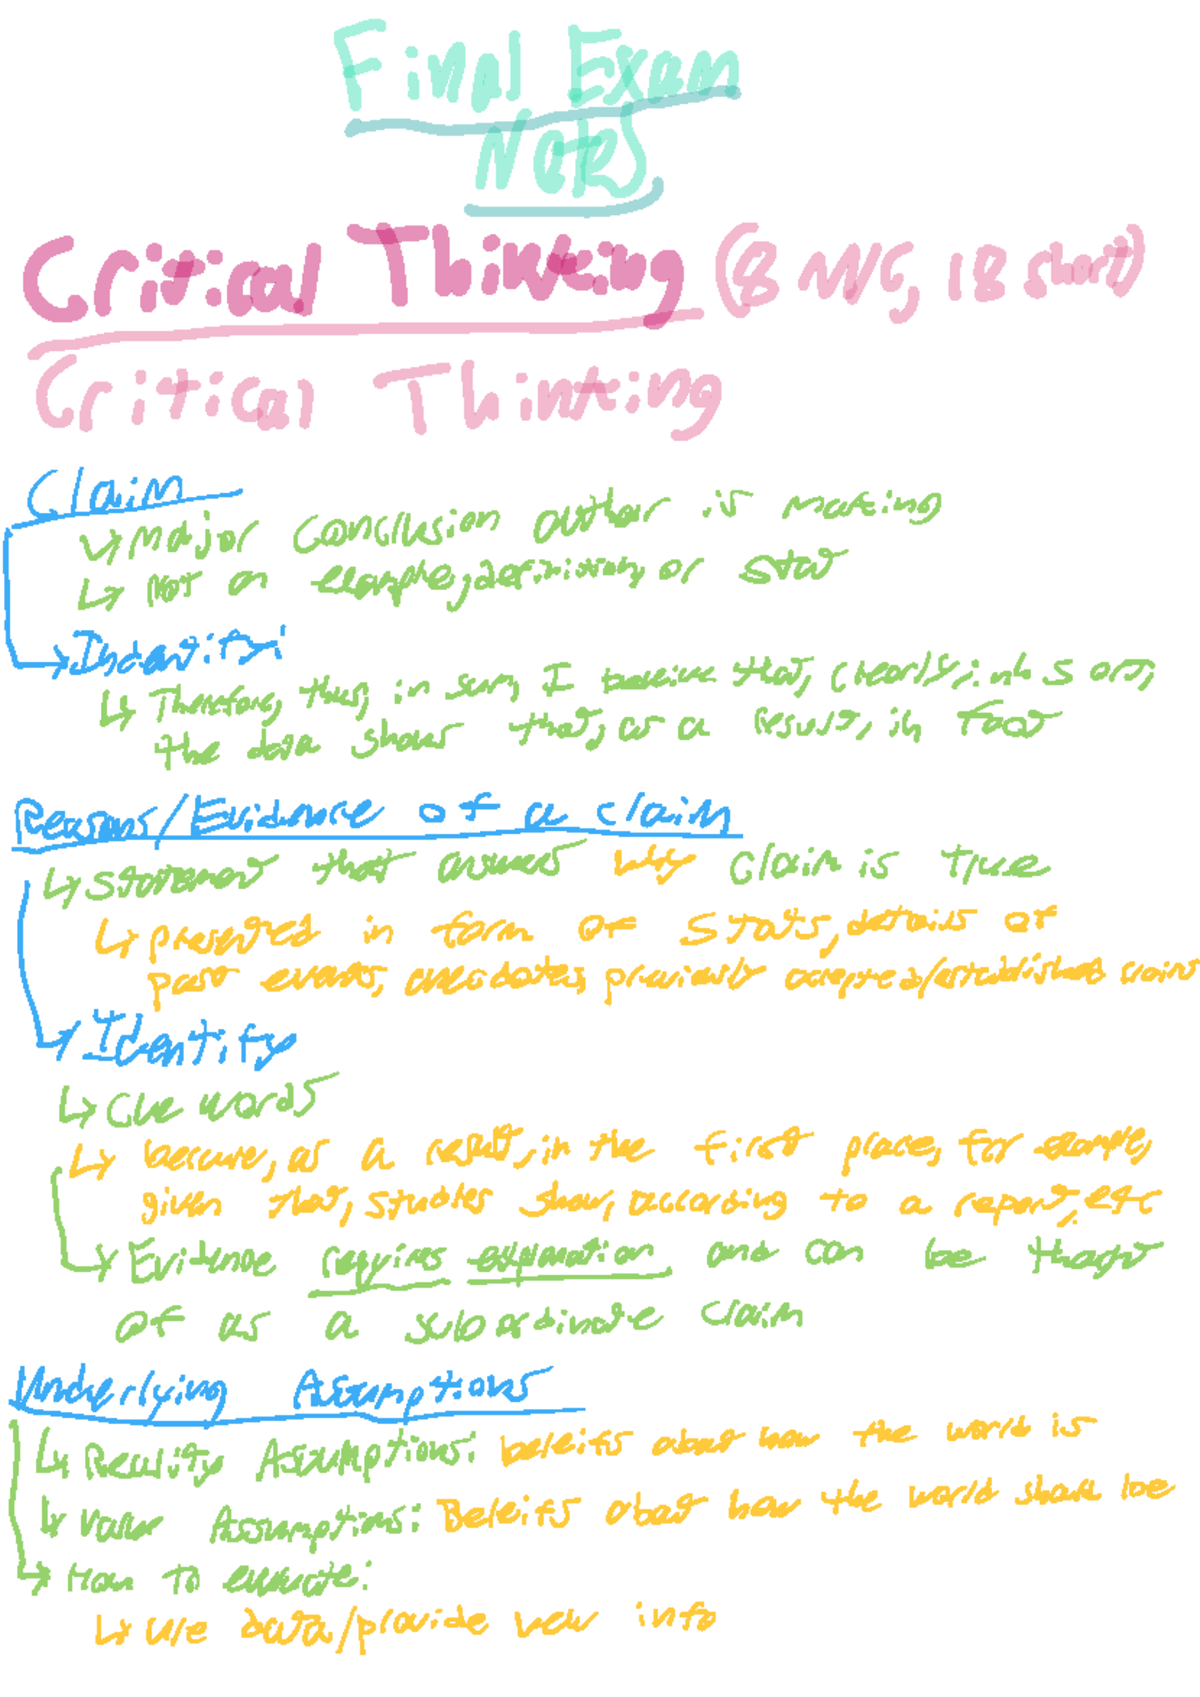 Final Exam
Notes
Critical Thinking (8 M/C, 18 short)
Critical Thinking
Claim
↳ Major conclusion author is making
↳ Not an example, definition, or stat
→ Indentify:
↳ Therefore, thus, in sum, I believe that, clearly,
the data shows that, as a result, in fact
Reasons/Evidence of a claim
↳ statement that answers why claim is true
↳ presented in form of stats, details of
past events, anecdotes, previously accepted/established claims
→ Identify
↳ Clue words
↳ because, as a result, in the first place, for example,
given that, studies show, according to a report, etc
→ Evidence requires explanation and can be thought
of as a subordinate claim
Underlying Assumptions
↳ Reality Assumptions: beleifs about how the world is
↳ Value Assumptions: Beleifs about how the world should be
→ How to evaluate:
↳ use data/provide new info